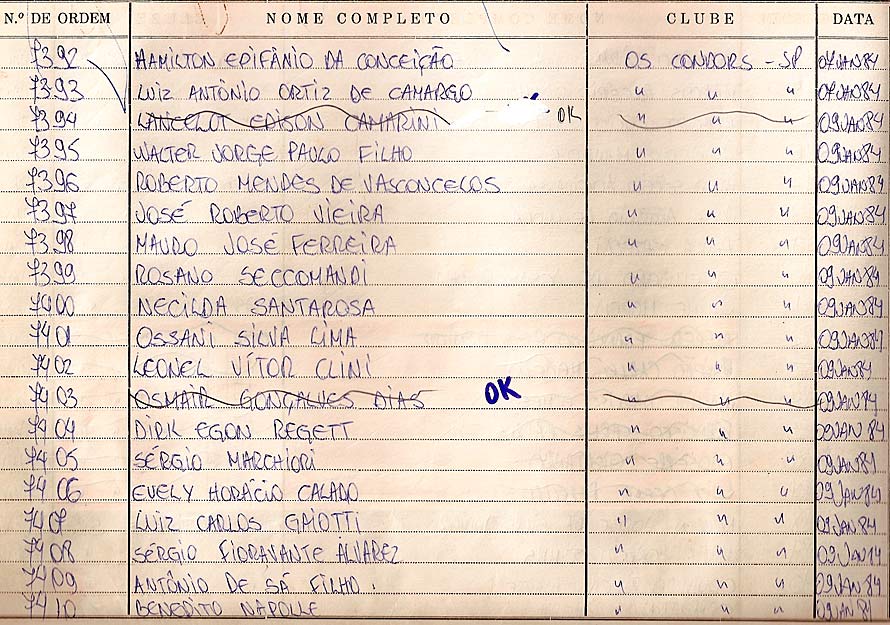 N.º DE ORDEM NOME COMPLETO CLUBE DATA
7392 HAMILTON EPIFÂNIO DA CONCEIÇÃO OS CONDORS - SP 07 JAN 84
7393 LUIZ ANTÔNIO ORTIZ DE CAMARGO " " " 07 JAN 84
7394 LANCELOT EDISON CAMARINI OK " " " 09 JAN 84
7395 WALTER JORGE PAULO FILHO " " " 09 JAN 84
7396 ROBERTO MENDES DE VASCONCELOS " " " 09 JAN 84
7397 JOSÉ ROBERTO VIEIRA " " " 09 JAN 84
7398 MAURO JOSÉ FERREIRA " " " 09 JAN 84
7399 ROSANO SECCOMANDI " " " 09 JAN 84
7400 NECILDA SANTAROSA " " " 09 JAN 84
7401 OSSANI SILVA LIMA " " " 09 JAN 84
7402 LEONEL VÍTOR CLINI " " " 09 JAN 84
7403 OSMAIR GONÇALVES DIAS OK " " " 09 JAN 84
7404 DIRK EGON REGETT " " " 09 JAN 84
7405 SÉRGIO MARCHIORI " " " 09 JAN 84
7406 EVELY HORÁCIO CALADO " " " 09 JAN 84
7407 LUIZ CARLOS GAIOTTI " " " 09 JAN 84
7408 SÉRGIO FIORAVANTE ÁLVAREZ " " " 09 JAN 84
7409 ANTÔNIO DE SÁ FILHO . " " " 09 JAN 84
7410 BENEDITO NAPOLLE " " " 09 JAN 84